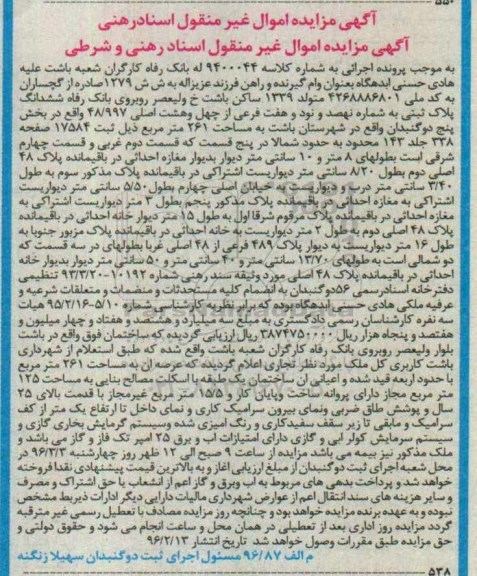 ۵۵۰
آگهی مزایده اموال غیر منقول اسنادرهنی
آگهی مزایده اموال غیر منقول اسناد رهنی و شرطی
به موجب پرونده اجرائی به شماره کلاسه ۹۴۰۰۰۴۴ له بانک رفاه کارگران شعبه باشت علیه
هادی حسنی ابدهگاه بعنوان وام گیرنده و راهن فرزند عزیزاله به ش ش ۱۲۷۹ صادره از گچساران
به کد ملی ۴۲۶۸۸۸۶۸۰۱ متولد ۱۳۳۹ ساکن باشت خ ولیعصر روبروی بانک رفاه ششدانگ
پلاک ثبتی به شماره نهصد و نود و هفت فرعی از چهل وهشت اصلی ۴۸/۹۹۷ واقع در بخش
پنج دوگنبدان واقع در شهرستان باشت به مساحت ۲۶۱ متر مربع ذیل ثبت ۱۷۵۸۴ صفحه
۳۳۸ جلد ۱۴۳ محدود به حدود شمالا در پنج قسمت که قسمت دوم غربی و قسمت چهارم
شرقی است بطولهای ۸ متر و ۱۰ سانتی متر دیوار بدیوار مغازه احداثی در باقیمانده پلاک ۴۸
اصلی دوم بطول ۸/۲۰ سانتی متر دیواریست اشتراکی در باقیمانده پلاک مذکور سوم به طول
۳/۴۰ سانتی متر درب و دیواریست به خیابان اصلی چهارم بطول ۵/۵۰ سانتی متر دیواریست
اشتراکی به مغازه احداثی در باقیمانده پلاک مذکور پنجم بطول ۳ متر دیواریست اشتراکی به
مغازه احداثی در باقیمانده پلاک مرقوم شرقا اول به طول ۱۵ متر دیوار خانه احداثی در باقیمانده
پلاک ۴۸ اصلی دوم به طول ۲ متر دیواریست به خانه احداثی در باقیمانده پلاک مزبور جنوبا به
طول ۱۶ متر دیواریست به دیوار پلاک ۴۸۹ فرعی از ۴۸ اصلی غربا بطولهای در سه قسمت که
دو شمالی است به طولهای ۱۳/۷۰ سانتی متر و ۴۰ سانتی متر و ۵۰ سانتی متر دیوار بدیوار خانه
احداثی در باقیمانده پلاک ۴۸ اصلی مورد وثیقه سند رهنی شماره ۱۰۱۹۲-۹۳/۳/۲۰ تنظیمی
دفترخانه اسنادرسمی ۵۶ دوگنبدان به انضمام کلیه مستحدثات و منضمات و متعلقات شرعیه و
عرفیه ملکی هادی حسینی ابدهگاه بوده که برابر نظریه کارشناسی شماره ۵/۱۰-۹۵/۲/۱۶ هیات
سه نفره کارشناسان رسمی دادگستری به مبلغ سه میلیارد و هشتصد و هفتاد و چهار میلیون و
هفتصد و پنجاه هزار ریال ۳۸۷۴۷۵۰۰۰۰ ریال ارزیابی گردیده که ساختمان فوق واقع در باشت
بلوار ولیعصر روبروی بانک رفاه کارگران شعبه باشت واقع شده که طبق استعلام از شهرداری
باشت کاربری کل ملک مورد نظر تجاری اعلام گردیده که عرصه ان به مساحت ۲۶۱ متر مربع
با حدود اربعه قید شده و اعیانی ان ساختمان یک طبقه با اسکلت مصالح بنایی به مساحت ۱۲۵
متر مربع مجاز دارای پروانه ساخت وپایان کار و ۱۵/۵ متر مربع غیرمجاز با قدمت بالای ۲۵
سال و پوشش طاق ضربی ونمای بیرون سرامیک کاری و نمای داخل تا ارتفاع یک متر از کف
سرامیک و مابقی تا زیر سقف سفیدکاری و رنگ امیزی شده وسیستم گرمایش بخاری گازی و
سیستم سرمایش کولر ابی و گازی دارای امتیازات اب و برق ۲۵ امپر تک فاز و گاز می باشد و
ملک مذکور نیز بیمه می باشد مزایده از ساعت ۹ صبح الی ۱۲ ظهر روز چهارشنبه ۹۶/۳/۳ در
محل شعبه اجرای ثبت دوگنبدان از مبلغ ارزیابی اغاز و به بالاترین قیمت پیشنهادی نقدا فروخته
خواهد شد و پرداخت بدهی های مربوط به اب وبرق و گاز اعم از انشعاب یا حق اشتراک و مصرف
و سایر هزینه های سند انتقال اعم از عوارض شهرداری مالیات دارایی دیگر ادارات ذیربط مشخص
نبوده و به عهده برنده مزایده خواهد بود و چنانچه روز مزایده مصادف با تعطیل رسمی غیر مترقبه
گردد مزایده روز اداری بعد از تعطیلی در همان محل و ساعت انجام می شود و حقوق دولتی و
حق مزایده طبق مقررات وصول خواهد شد تاریخ انتشار ۹۶/۲/۱۳
م الف ۹۶/۸۷ مسئول اجرای ثبت دوگنبدان سهیلا زنگنه
۵۳۸